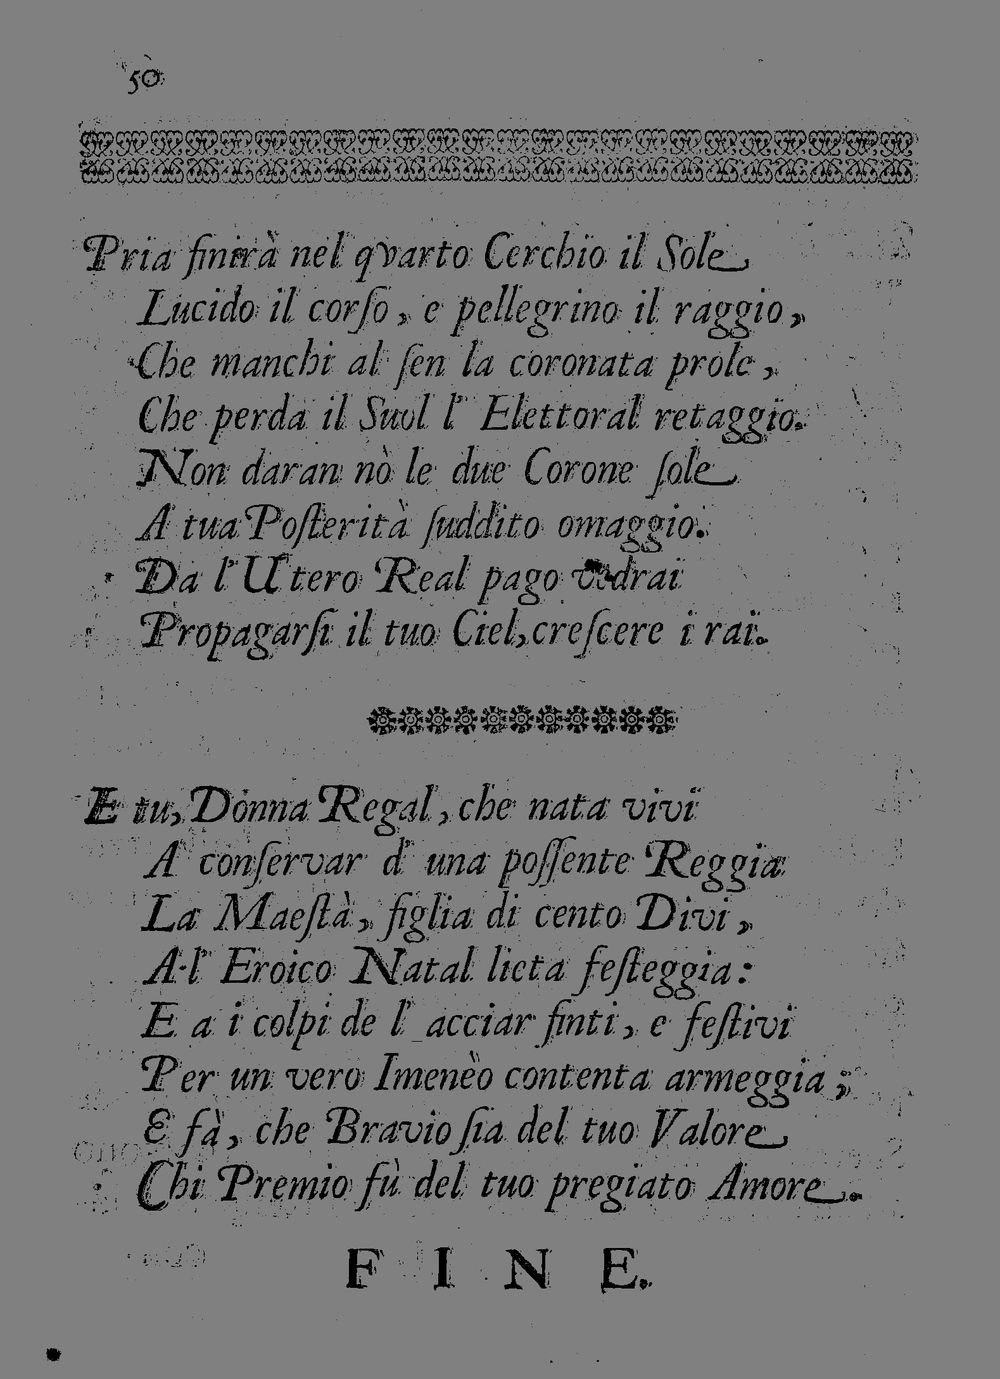 50
Pria finirà nel qvarto Cerchio il Sole
Lucido il corſo, e pellegrino il raggio,
Che manchi al ſen la coronata prole,
Che perda il Suol l' Elettoral retaggio.
Non daran nò le due Corone ſole
A tua Poſterità ſuddito omaggio.
Da l' Utero Real pago vedrai
Propagarſi il tuo Ciel, creſcere i rai.
E tu, Donna Regal, che nata vivi
A conſervar d' una poſſente Reggia
La Maeſtà, figlia di cento Divi,
A l' Eroico Natal lieta feſteggia:
E a i colpi de l' acciar finti, e feſtivi
Per un vero Imenèo contenta armeggia;
E fà, che Bravio ſia del tuo Valore
Chi Premio fù del tuo pregiato Amore.
FINE.